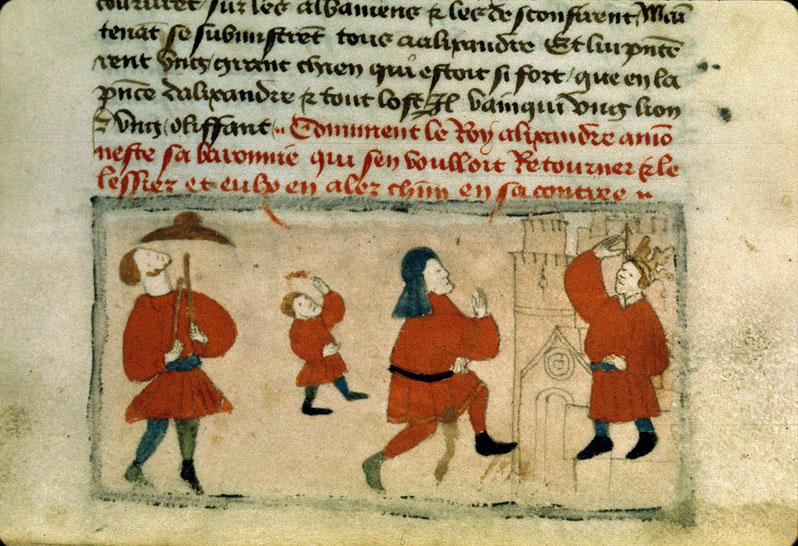 coururet sur les albaniens & les desconfirent Main
tenat se submistrent tous a alixandre Et luy pnte
rent ung grant chien qui estoit si fort / que en la
pnce dalixandre & tout lost Il vainqui ung lion
& ung oliffant Comment le Roy alixandre amo
neste sa baronnie qui sen voulloit Retourner & le
lessier et eulx en aler chun en sa contree